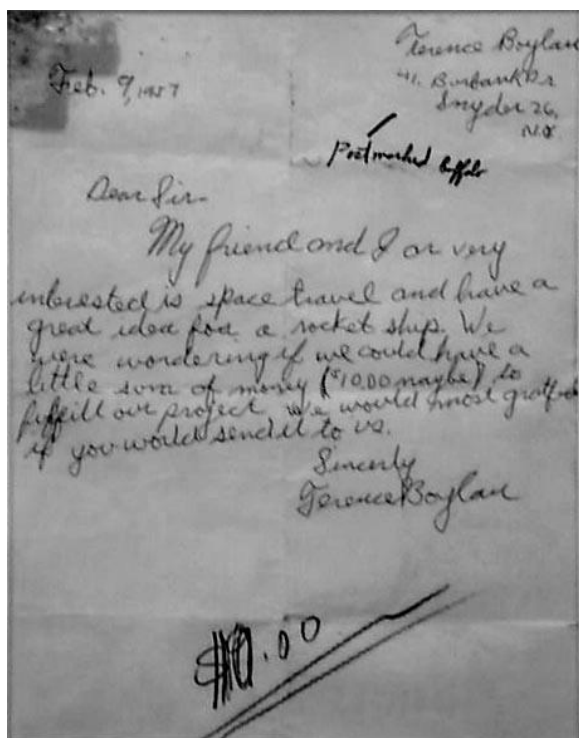 Terence Boylan
Feb. 9, 1957
41. Burbank Dr
Snyder 26,
N.Y.
Postmarked buffalo
Dear Sir-
My friend and I ar very
interested is space travel and have a
great idea for a rocket ship. We
were wondering if we could have a
little sum of money ($10.00 maybe) to
fulfill our project we would most gratful
if you would send it to us.
Sincerly
Terence Boylan
$10.00